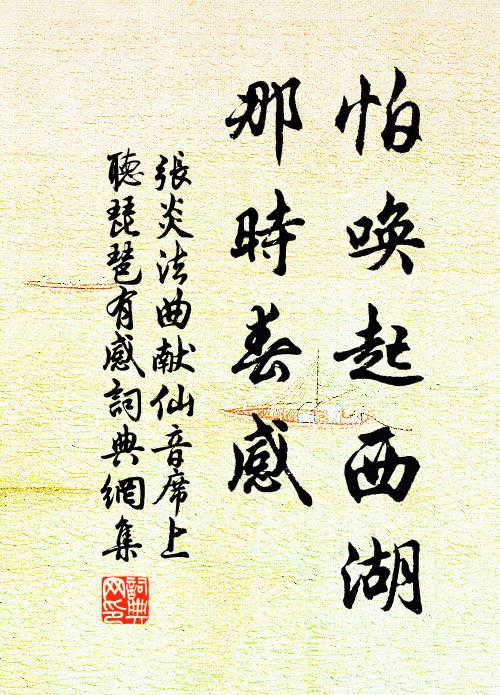 怕唤起西湖
那時春感
張炎法曲献仙音席上
聽琵琶有感詞典網集
詞典
网印